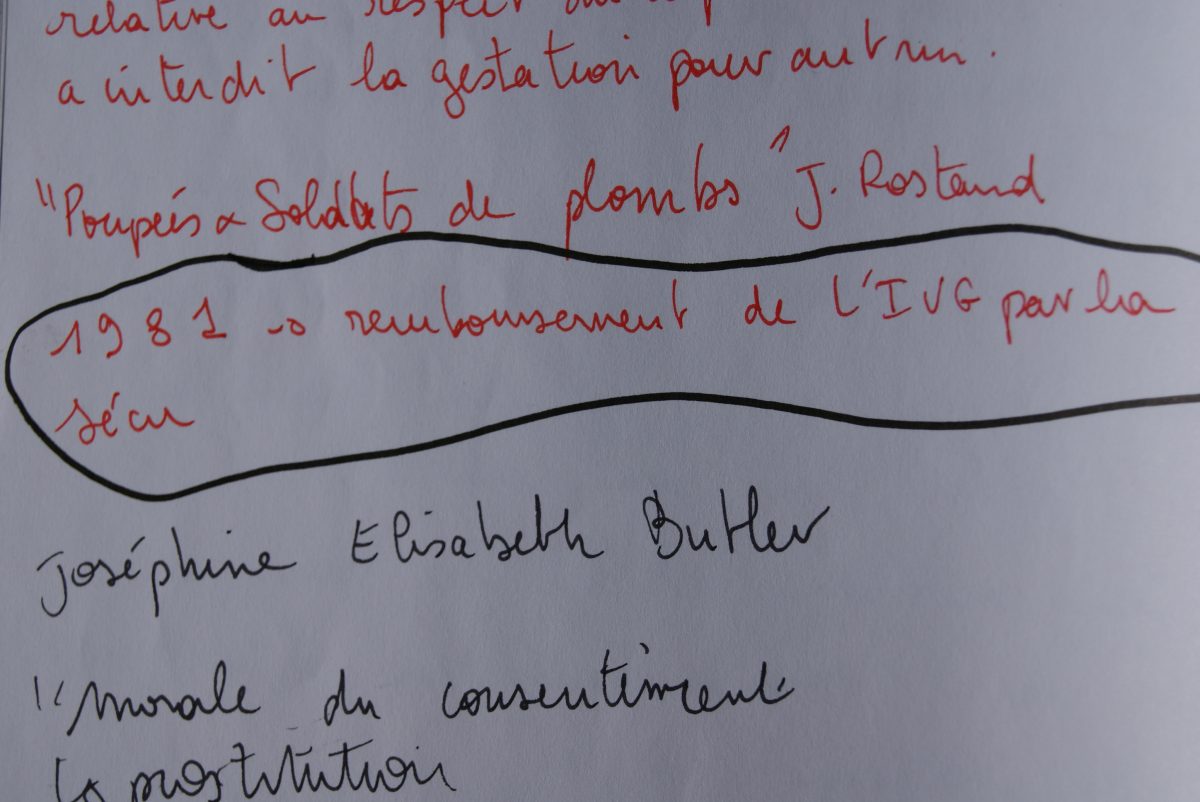 relative au respect du
a interdit la gestation pour autrui.
"Poupées & Soldats de plombs" J. Rostand
1981 → remboursement de l'IVG par la
sécu
Joséphine Elisabeth Butler
"Morale du consentement
la prostitution